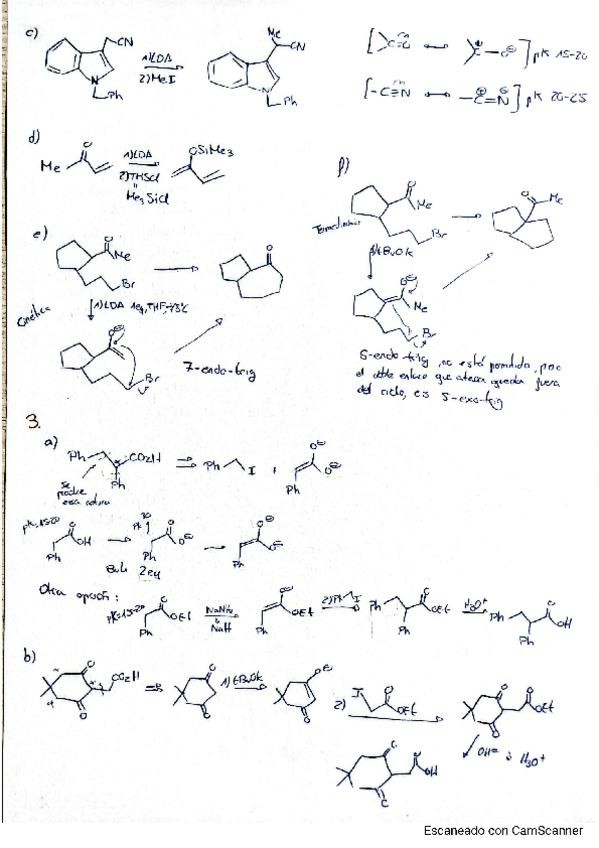 c)
CN
N
Ph
1) LDA
2) MeI
Me
CN
N
Ph
pK 15-20
pK 20-25
d)
Me
O
1) LDA
2) TMSCl
Me3SiCl
OSiMe3
e)
O
Me
Br
O
Cinética
1) LDA 1eq, THF, -78°C
Br
7-endo-trig
f)
O
Me
Br
O
Me
Termodinámico
1) tBuOK
Me
Br
5-endo-trig, no está permitido, por
el doble enlace que atacan queda fuera
del ciclo, es 5-exo-trig
3.
a)
Ph
CO2H
Ph
Se
produce
esa
Ph
I
+
Ph
pK 15-20
OH
Ph
Ph
BuLi 2eq
Ph
Otra opción:
pK 15-20
OEt
Ph
NaH
OEt
Ph
2) Ph I
Ph
OEt
Ph
H3O+
Ph
OH
Ph
b)
O
CO2H
O
1) tBuOK
O
2)
I
OEt
O
OEt
O
OH- ó H3O+
OH
Escaneado con CamScanner